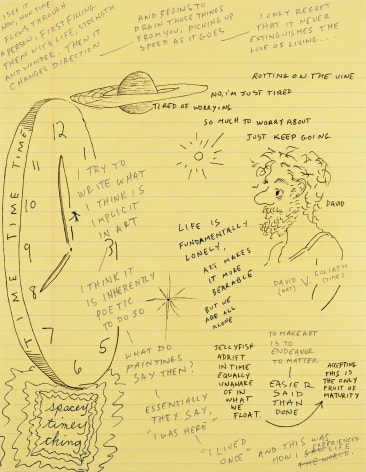 I SEE IT
NOW, HOW TIME
FLOWS THROUGH
A PERSON, FIRST FILLING
THEM WITH LIFE, STRENGTH
AND WONDER. THEN IT
CHANGES DIRECTION
AND BEGINS TO
DRAIN THOSE THINGS
FROM YOU, PICKING UP
SPEED AS IT GOES
I ONLY REGRET
THAT IT NEVER
EXTINGUISHES THE
LOVE OF LIVING...
ROTTING ON THE VINE
NO, I'M JUST TIRED
TIRED OF WORRYING
SO MUCH TO WORRY ABOUT
JUST KEEP GOING
TIME TIME TIME TIME
12
11
10
9
8
7
6
5
31
I TRY TO
WRITE WHAT
I THINK IS
IMPLICIT
IN ART
I THINK IT
IS INHERENTLY
POETIC
TO DO SO
DAVID
DAVID V. GOLIATH
(ART) (TIME)
LIFE IS
FUNDAMENTALLY
LONELY,
ART MAKES
IT MORE
BEARABLE
BUT WE
ARE ALL
ALONE
WHAT DO
PAINTINGS
SAY THEN?
ESSENTIALLY
THEY SAY,
"I WAS HERE"
JELLYFISH
ADRIFT
IN TIME
EQUALLY
UNAWARE
OF IN
WHAT
WE
FLOAT.
TO MAKE ART
IS TO
ENDEAVOR
TO MATTER
EASIER
SAID
THAN
DONE
ACCEPTING
THIS IS
THE ONLY
FRUIT OF
MATURITY
spacey
timey
thing
"I LIVED
ONCE" AND THIS WAS
HOW I SAW EXPERIENCED
LIFE
THE WORLD.